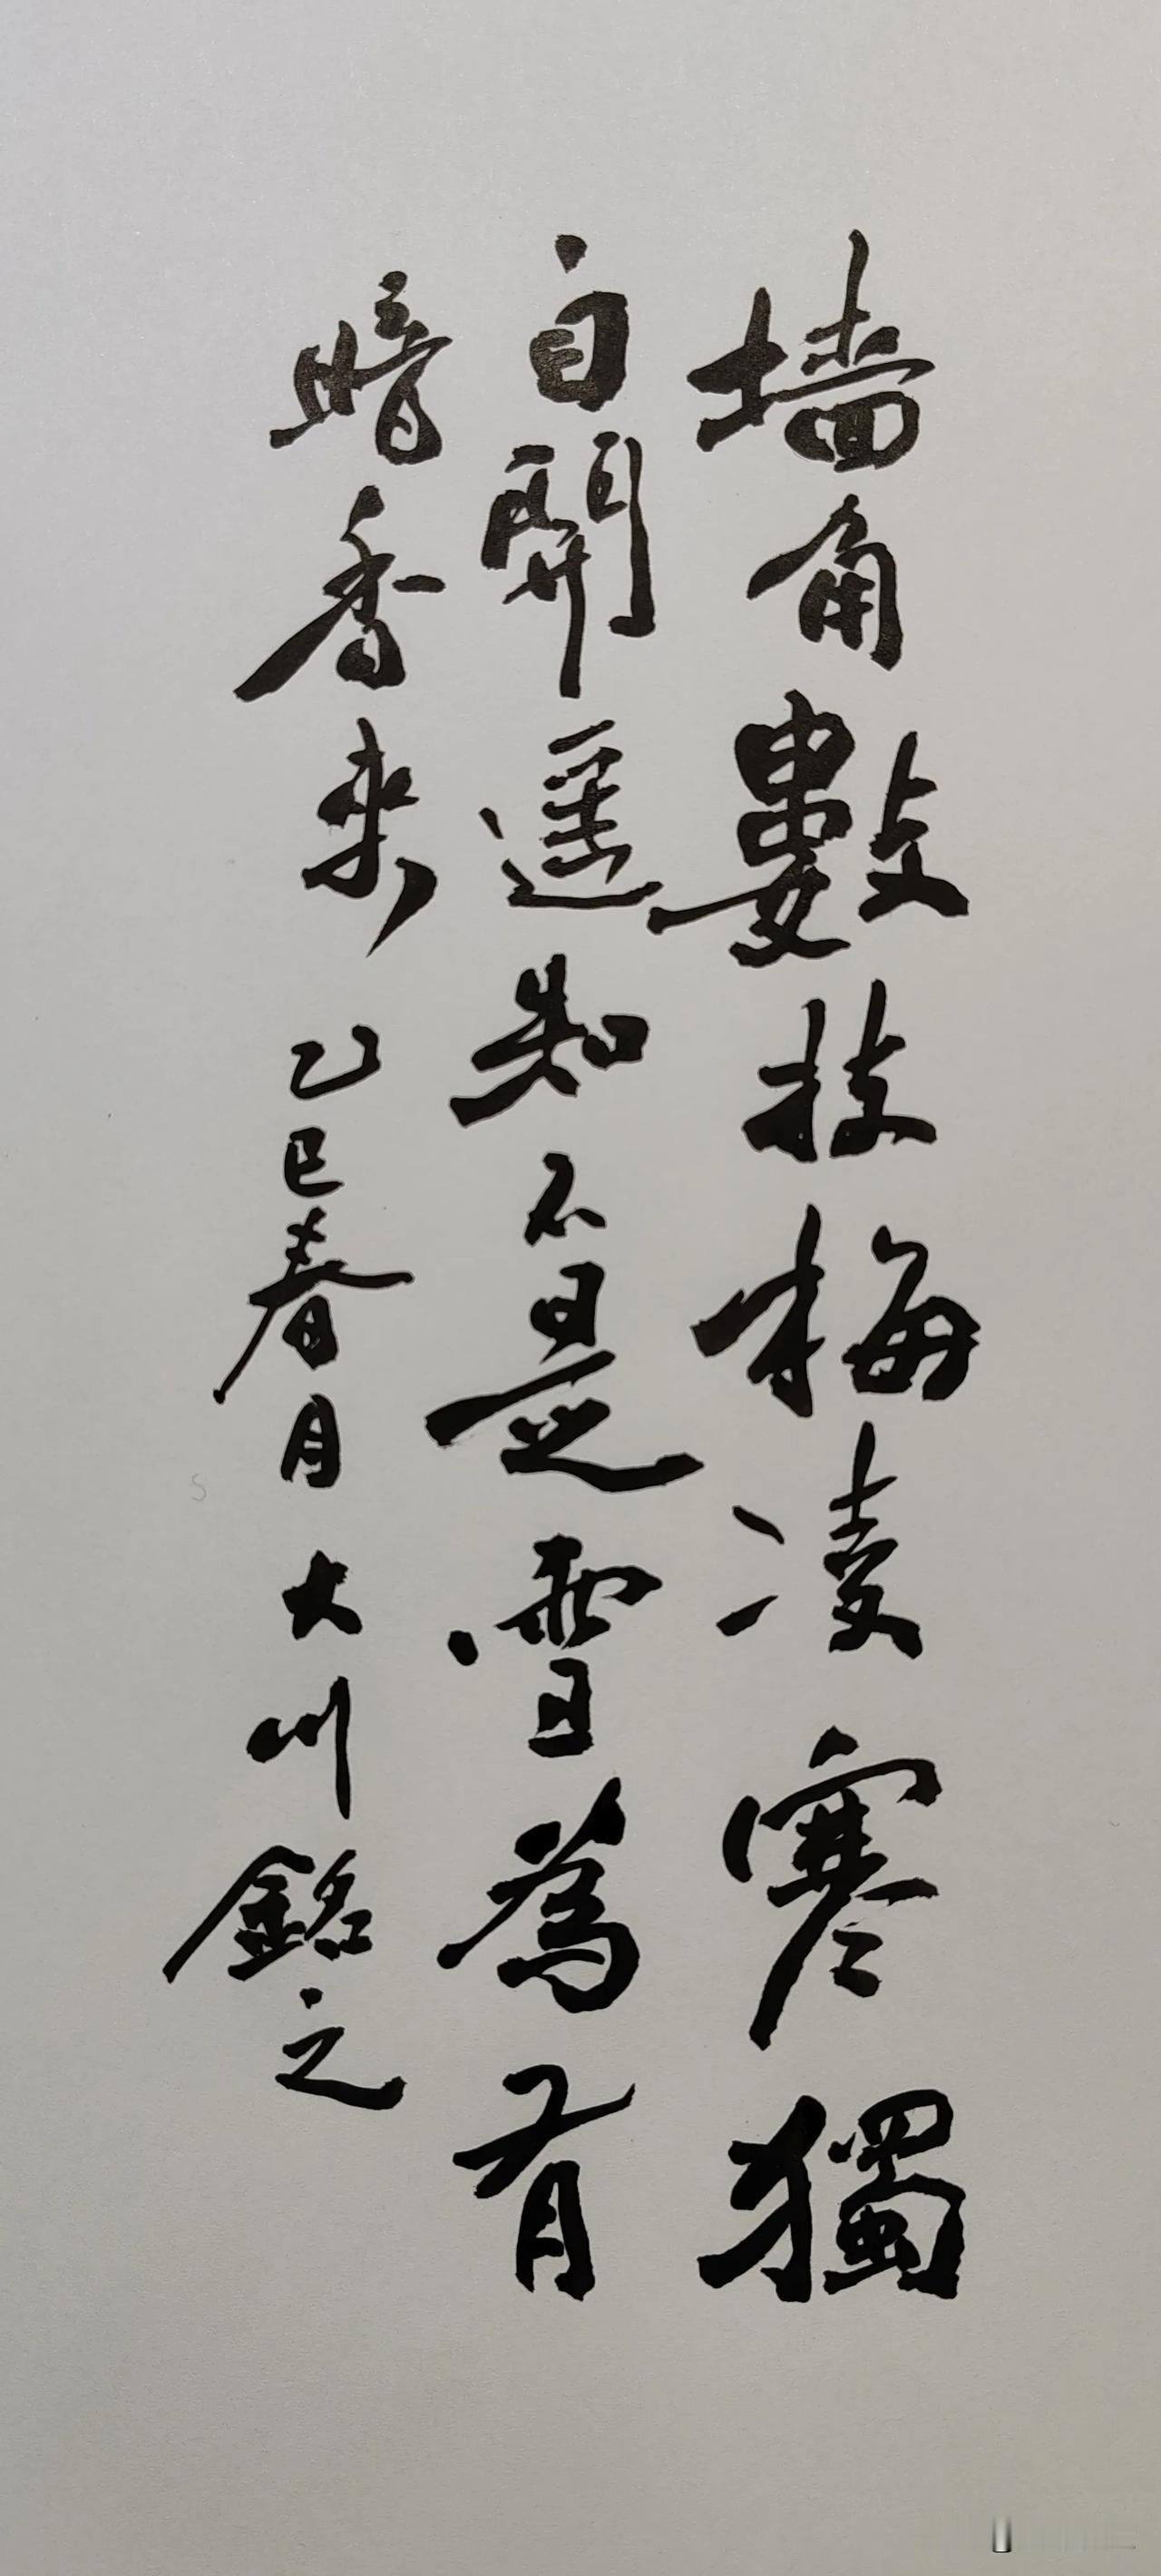 墙角數枝梅凌寒獨
自開遥知不是雪為有
暗香来 乙巳春月 大川銘之